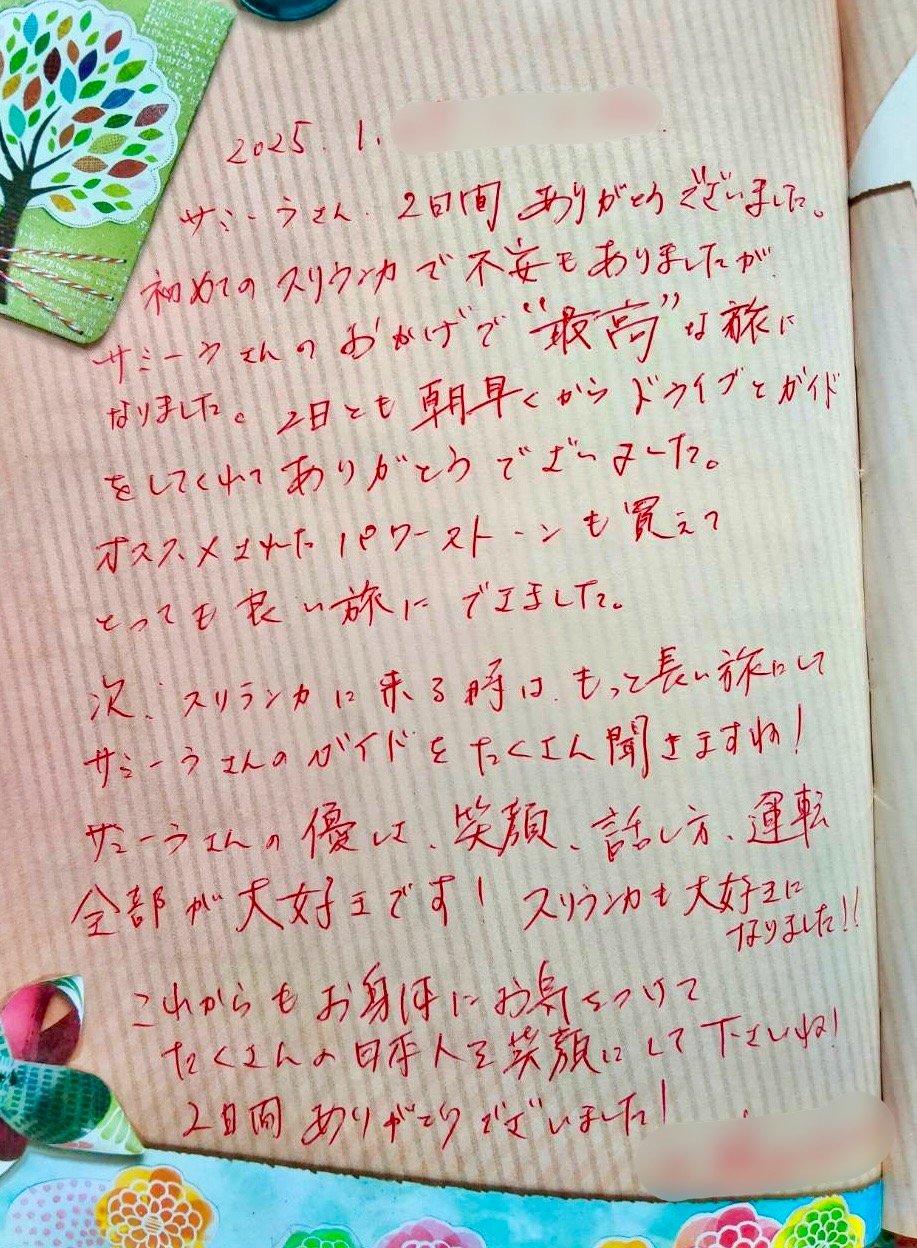 2025. 1.
サミーラさん、2日間ありがとうございました。
初めてのスリランカで不安もありましたが
サミーラさんのおかげで“最高”な旅に
なりました。2日とも朝早くからドライブとガイド
をしてくれてありがとうございました。
オススメされたパワーストーンも買えて
とっても良い旅にできました。
次、スリランカに来る時は、もっと長い旅にして
サミーラさんのガイドをたくさん聞きますね！
サミーラさんの優しさ、笑顔、話し方、運転
全部が大好きです！スリランカも大好きに
なりました!!
これからもお身体にお気をつけて
たくさんの日本人を笑顔にして下さいね！
2日間ありがとうございました！